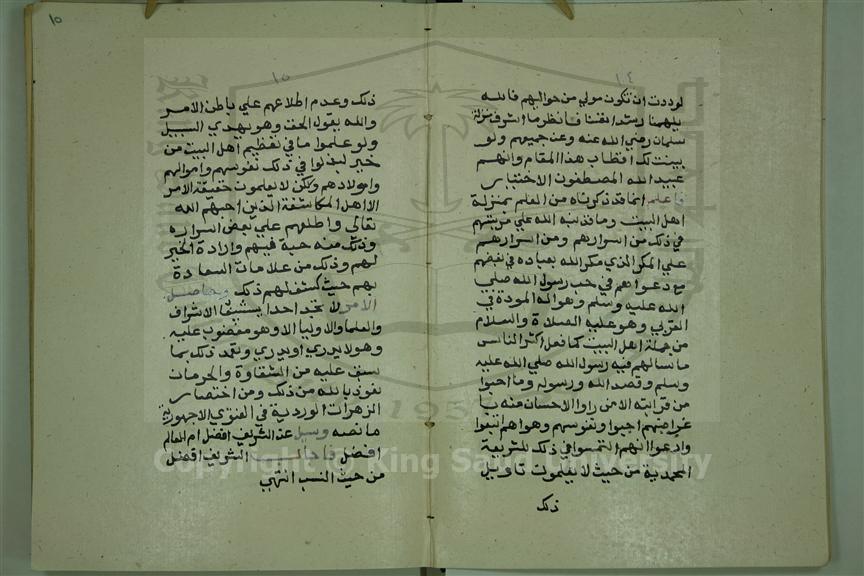 ١٤
لوددت ان تكون مولي من مواليهم فالله
يلهمنا رشد انفسنا فانظر ما اشرف منزلة
سلمان رضي الله عنه وعن جميعهم ولو
بينت لك اقطاب هذا المقام وانهم
عبيد الله المصطفون الاخيار
فاعلم انما قد ذكرناه من العلم بمنزلة
اهل البيت وما قد نبه الله علي مرتبتهم
في ذلك من اسرارهم ومن اسرارهم
علي المكر الذي مكر الله بعباده في بغضهم
مع دعواهم في حب رسول الله صلي
الله عليه وسلم وسؤاله المودة في
القربي وهو عليه الصلاة والسلام
من جملة اهل البيت كما فعل اكثر الناس
ما سالهم فيه رسول الله صلي الله عليه
وسلم وقصد الله ورسوله وما احبوا
من قرابته الا من راوا الاحسان منه با
غراضهم احبوا ونفوسهم وهواهم اتبعوا
وادعوا انهم التمسوا في ذلك للشريعة
المحمدية من حيث لا يعلمون تاويل
ذلك
١٥
ذلك وعدم اطلاعهم علي باطن الامر
والله يقول الحق وهو يهدي السبيل
ولو علموا ما في تعظيم اهل البيت من
خير لبذلوا في ذلك نفوسهم واموالهم
واولادهم ولكن لا يعلمون حقيقة الامر
الا اهل المكاشفة الذين احبهم الله
تعالي واطلعهم علي بعض اسراره
وذلك منه حبة فيهم وارادة الخير
لهم وذلك من علامات السعادة
بهم حيث كشف لهم ذلك وحاصل
الامر لا تجد احدا يبغض الاشراف
والعلما والاوليا الا وهو مغضوب عليه
وهو لا يدري او يدري وتعمد ذلك بما
سبق عليه من الشقاوة والحرمان
نعوذ بالله من ذلك ومن اختصار
الزهرات الوردية في الفتوي الاجهورية
ما نصه وسيل عن الشريف افضل ام العالم
افضل فاجاب الشريف افضل
من حيث النسب انتهي
١٥
Copyright © King Saud University
1957